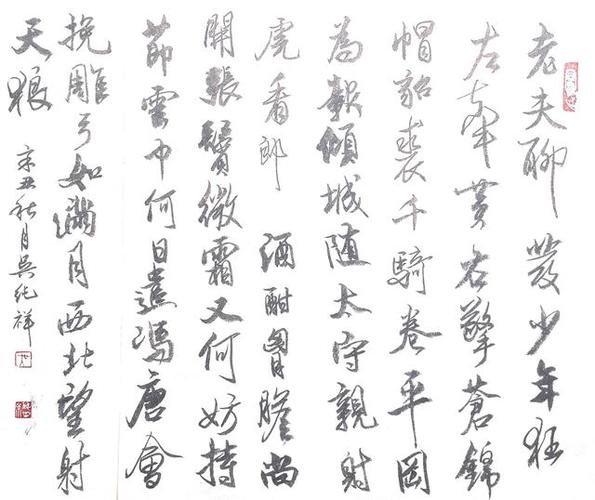 老夫聊發少年狂
左牽黃右擎蒼錦
帽貂裘千騎卷平岡
為報傾城隨太守親射
虎看郎 酒酣胷膽尚
開張鬢微霜又何妨持
節雲中何日遣馮唐會
挽雕弓如滿月西北望射
天狼
辛丑秋月吳純祥